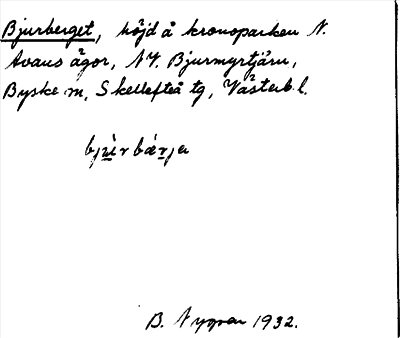 Bjurberget, höjd å kronoparken N.
Avans ägor, NV. Bjurmyrtjärn,
Byske m, Skellefteå tg, Västerb. l.
bjù̲r bær̲ja
B. Nygren 1932.